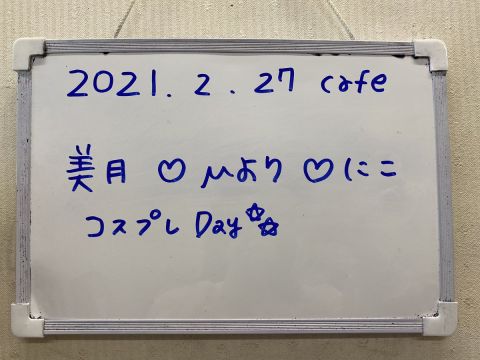 2021.2.27 cafe
美月 ♡ ひより ♡ にこ
コスプレDay☆☆